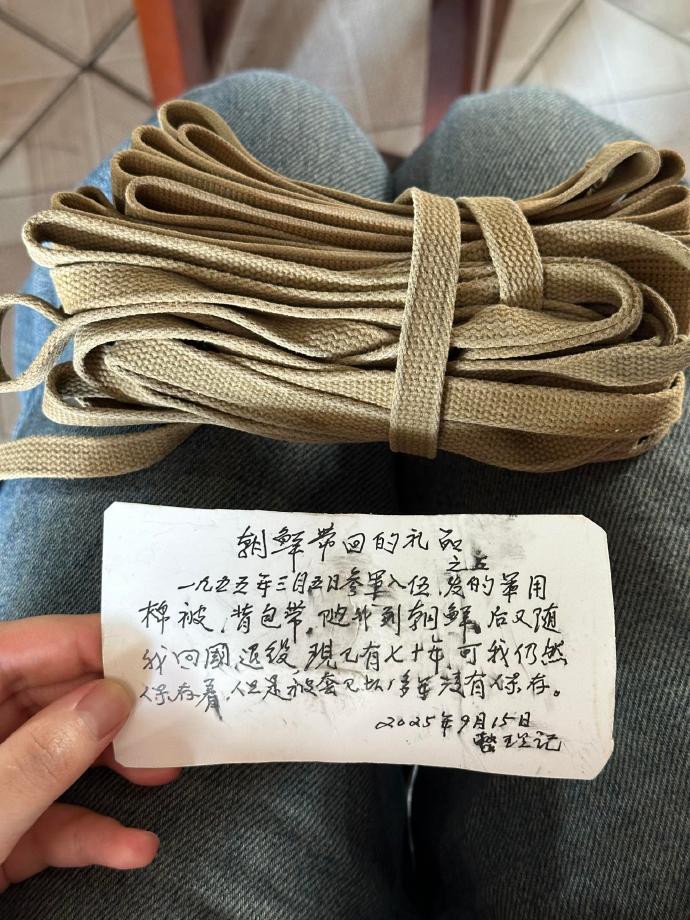 朝鲜带回的礼品
之五
一九五五年三月五日参军入伍,发的军用
棉被,背包带,随我到朝鲜,后又随
我回國退役,現已有七十年,可我仍然
保存着,但是被套已坏多年没有保存。
2025年9月15日
整理记